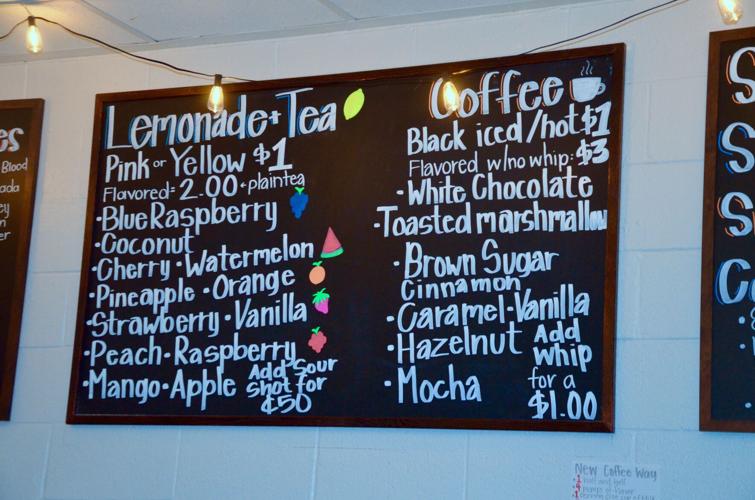 es
Blood
ada
ey
n
er
Lemonade + Tea
Pink or Yellow $1
Flavored = 2.00 + plain tea
• Blue Raspberry
• Coconut
• Cherry • Watermelon
• Pineapple • Orange
• Strawberry • Vanilla
• Peach • Raspberry
• Mango • Apple
Add sour
shot for
¢50
Coffee
Black iced/hot $1
Flavored w/no whip: $3
• White Chocolate
• Toasted marshmallow
• Brown Sugar
Cinnamon
• Caramel • Vanilla
• Hazelnut
• Mocha
Add
whip
for a
$1.00
S
S
S
Co
New Coffee Way
half and half
pumps of flavor